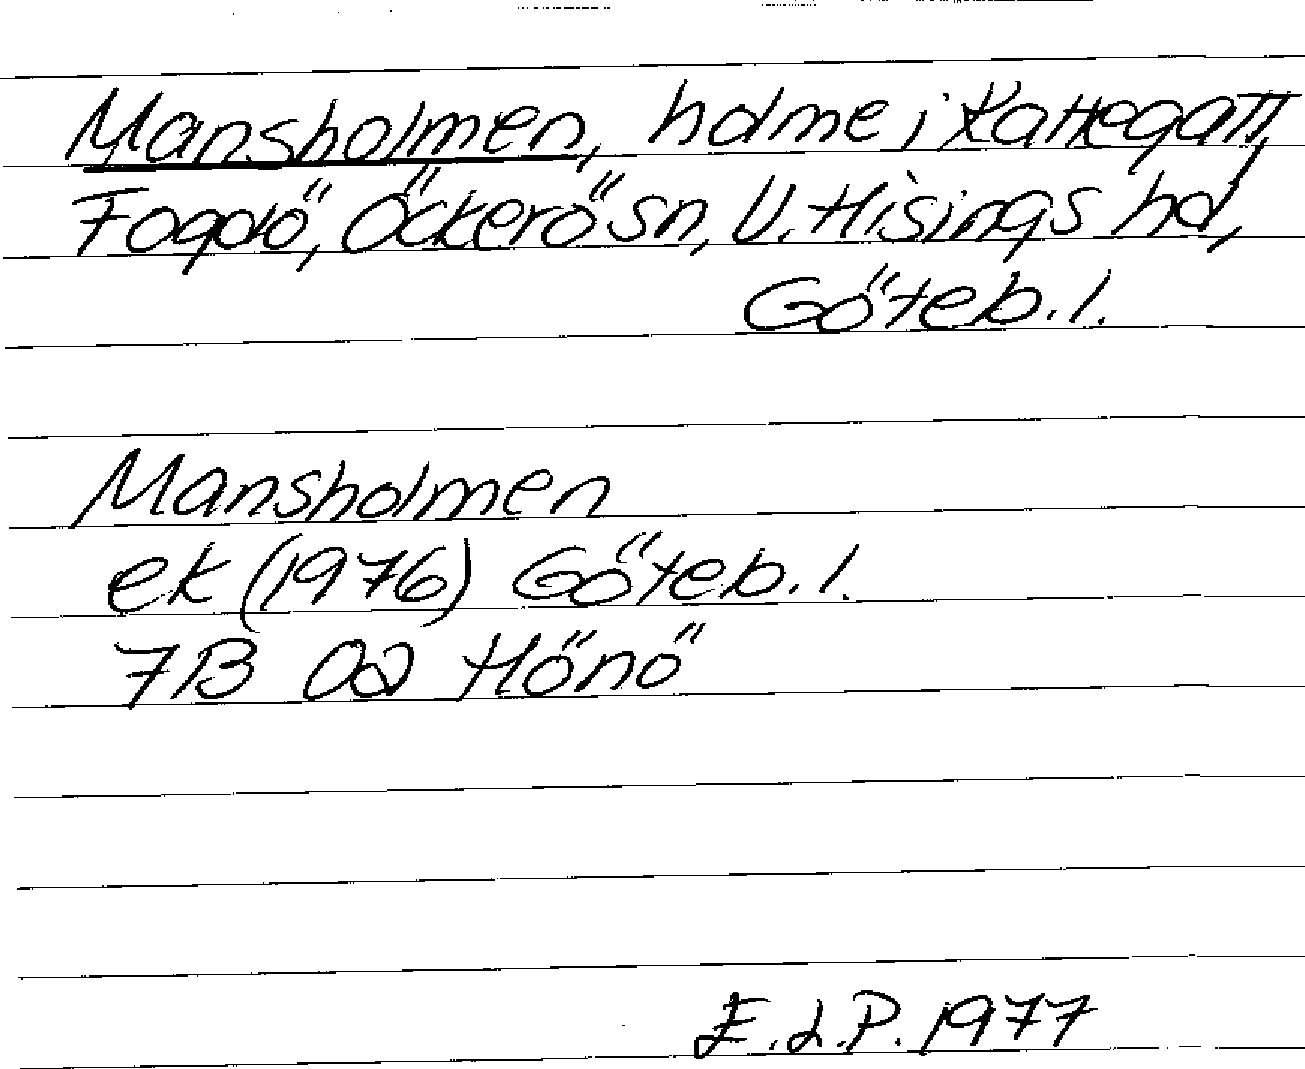 Mansholmen, holme i Kattegatt,
Fogdö, Öckerö sn, V. Hisings hd,
Göteb. l.
Mansholmen
ek (1976) Göteb. l.
7B 0a Hönö
E.L.P. 1977